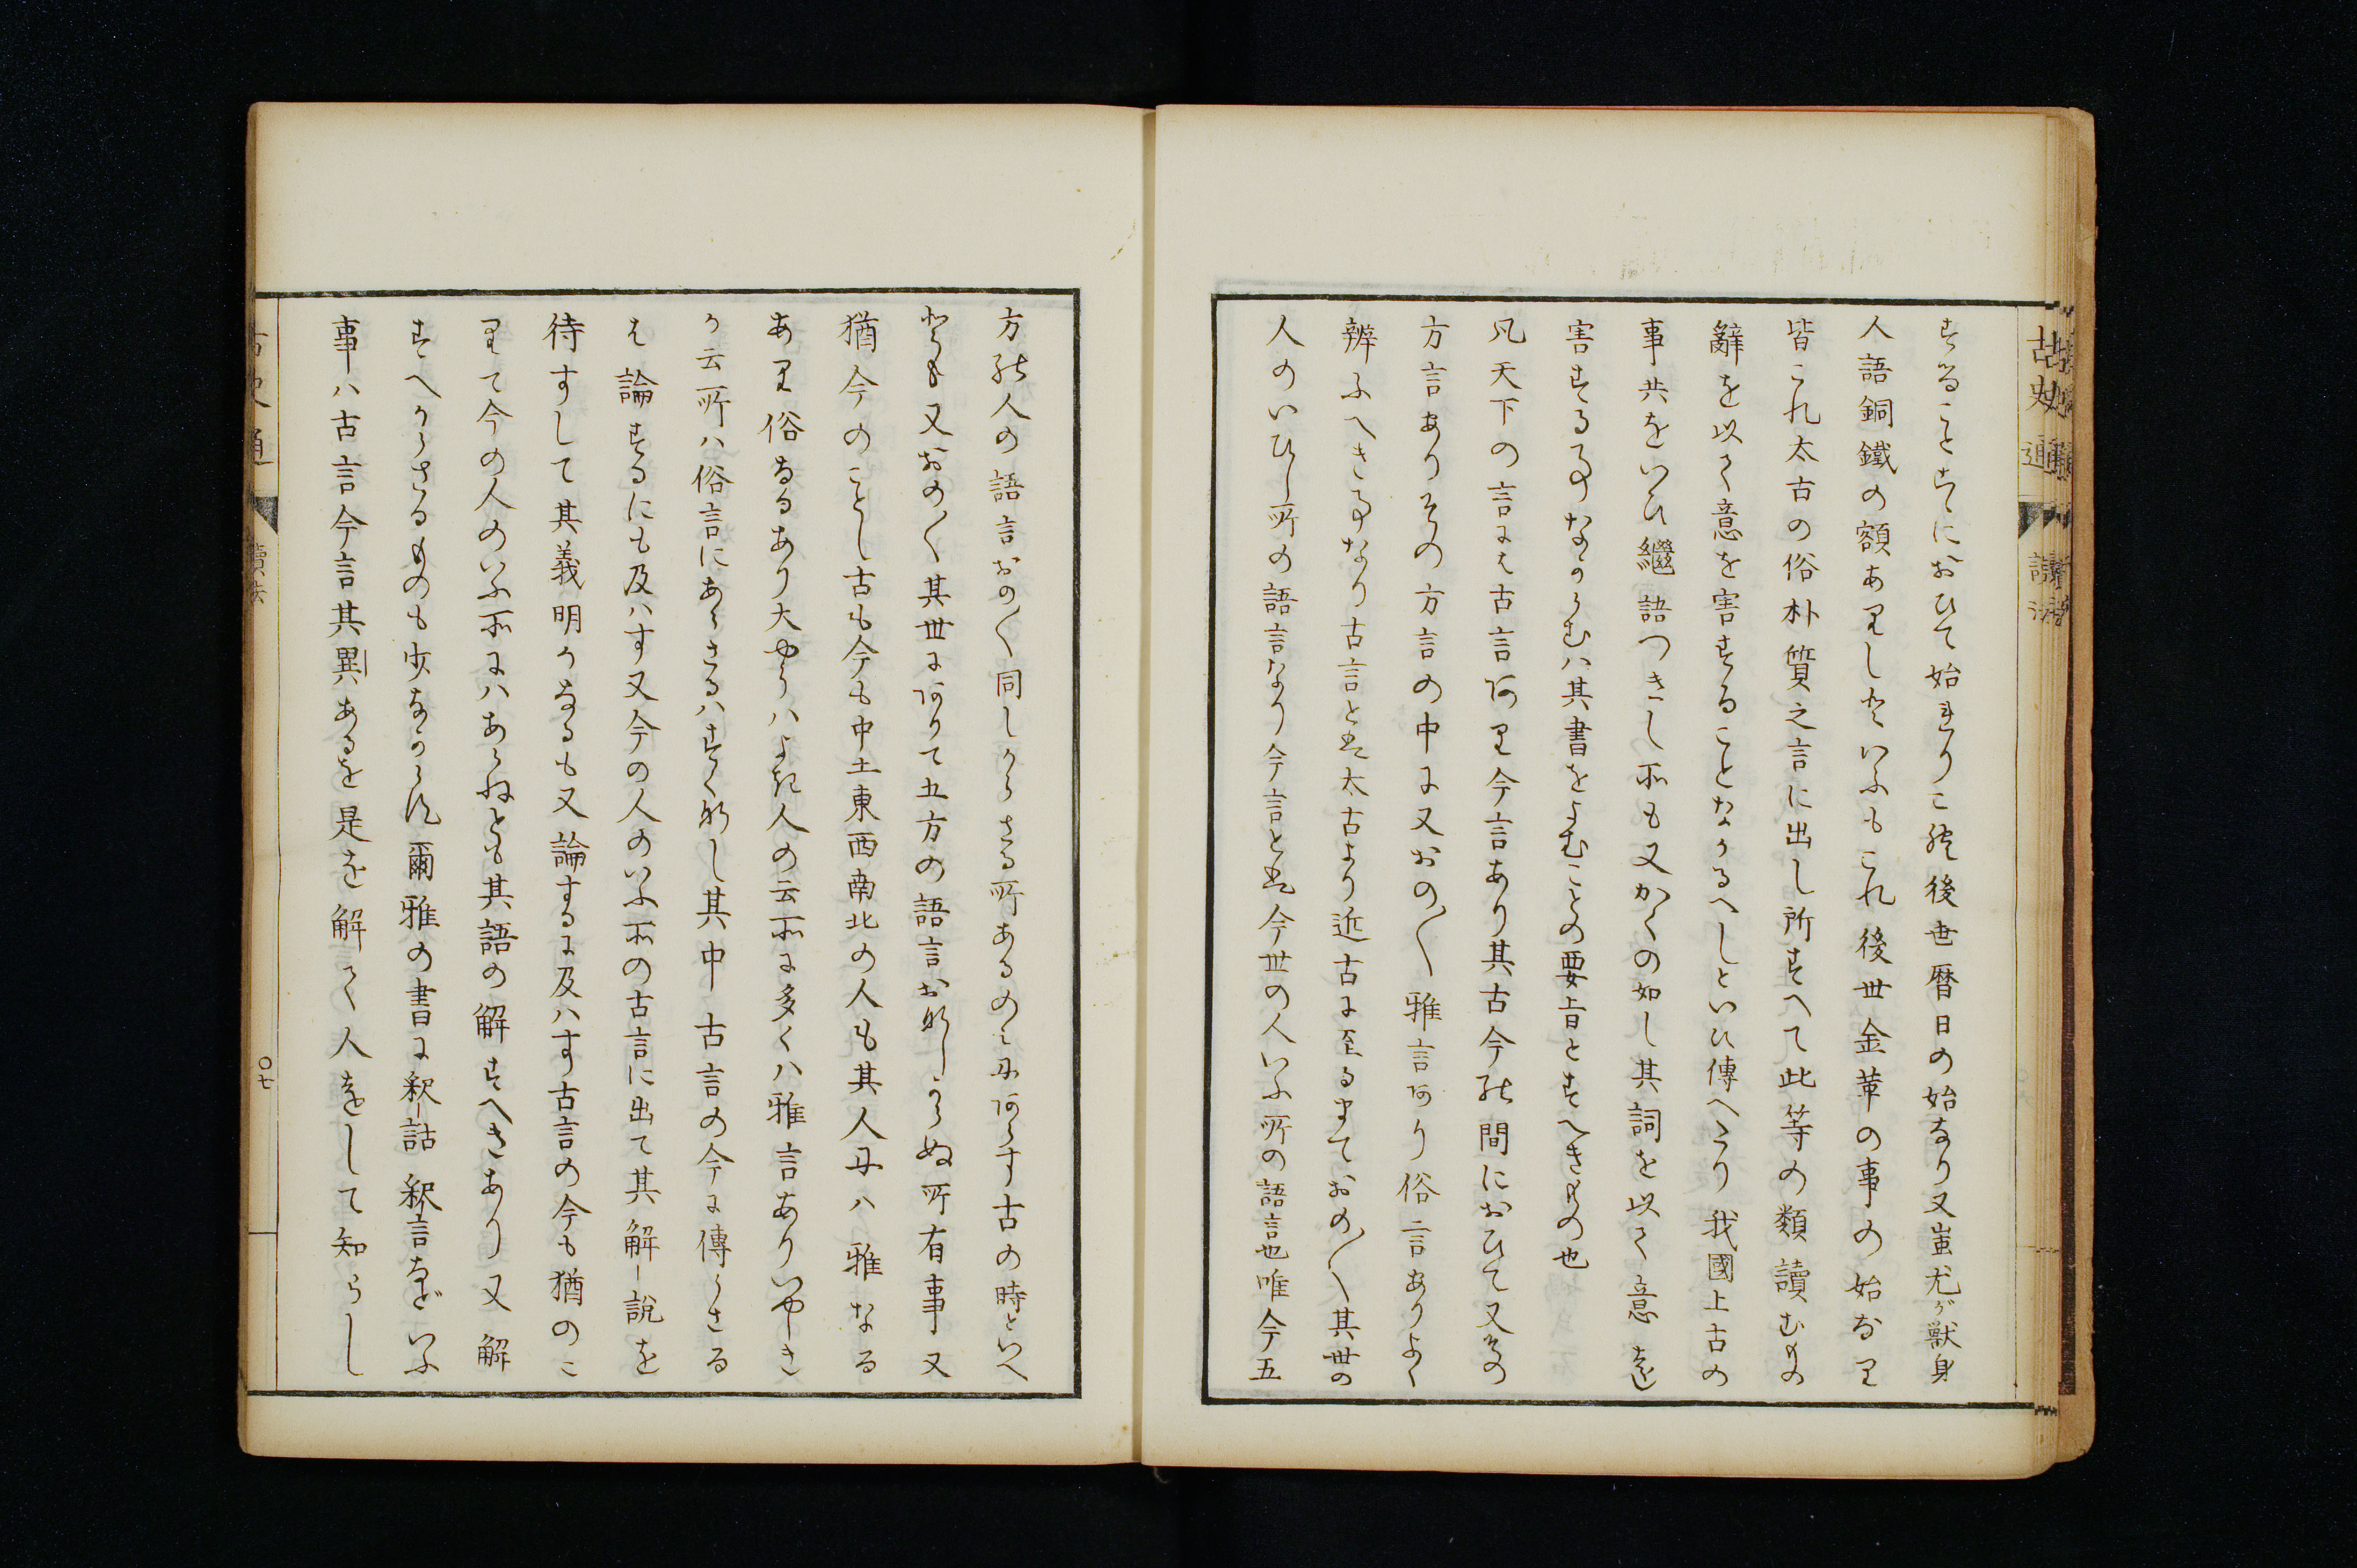 する[こと]こゝにおひて始れりこれ後世暦日の始なり又蚩尤ガ獣身
人語銅鐵の額ありしといふもこれ後世金革の事の始なり
皆これ太古の俗朴質之言に出し所すへて此等の類讀むもの
辭を以て意を害することなかるへしといひ傳へたり我國上古の
事共をいひ繼語つきし所も又かくの如し其詞を以て意を
害する事なからむハ其書をよむことの要旨とすへきもの也
凡天下の言には古言あり今言あり其古今の間におひて又その
方言ありその方言の中に又おの〱雅言あり俗言ありよく
辨ふへき事なり古言とは太古より近古に至るまておの〱其世の
人のいひし所の語言なり今言とは今世の人いふ所の語言也唯今五
方の人の語言おの〱同しからさる所あるのみにあらす古の時といへ
とも又おの〱其世にありて五方の語言おなしからぬ所有事又
猶今のことし古も今も中土東西南北の人も其人にハ雅なる
あり俗なるあり大やうハよき人の云所に多くハ雅言ありいやしき
か云所ハ俗言にあらさるハすくなし其中古言の今に傳らさる
は論するにも及ハす又今の人のいふ所の古言に出て其解説を
待すして其義明かなるも又論するに及ハす古言の今も猶のこ
りて今の人のいふ所にハあらねとも其語の解すへきあり又解
すへからさるものも少なからす爾雅の書に釈詁釈言などいふ
事ハ古言今言其異あるを是を解て人をして知らし
古史通
讀法
〇七